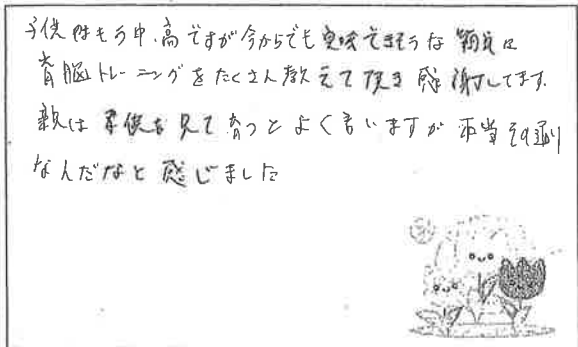 子供はもう中、高ですが今からでも実践できそうな
育脳トレーニングをたくさん教えて頂き感謝してます。
親は子供を見て育つとよく言いますが本当その通り
なんだなと感じました